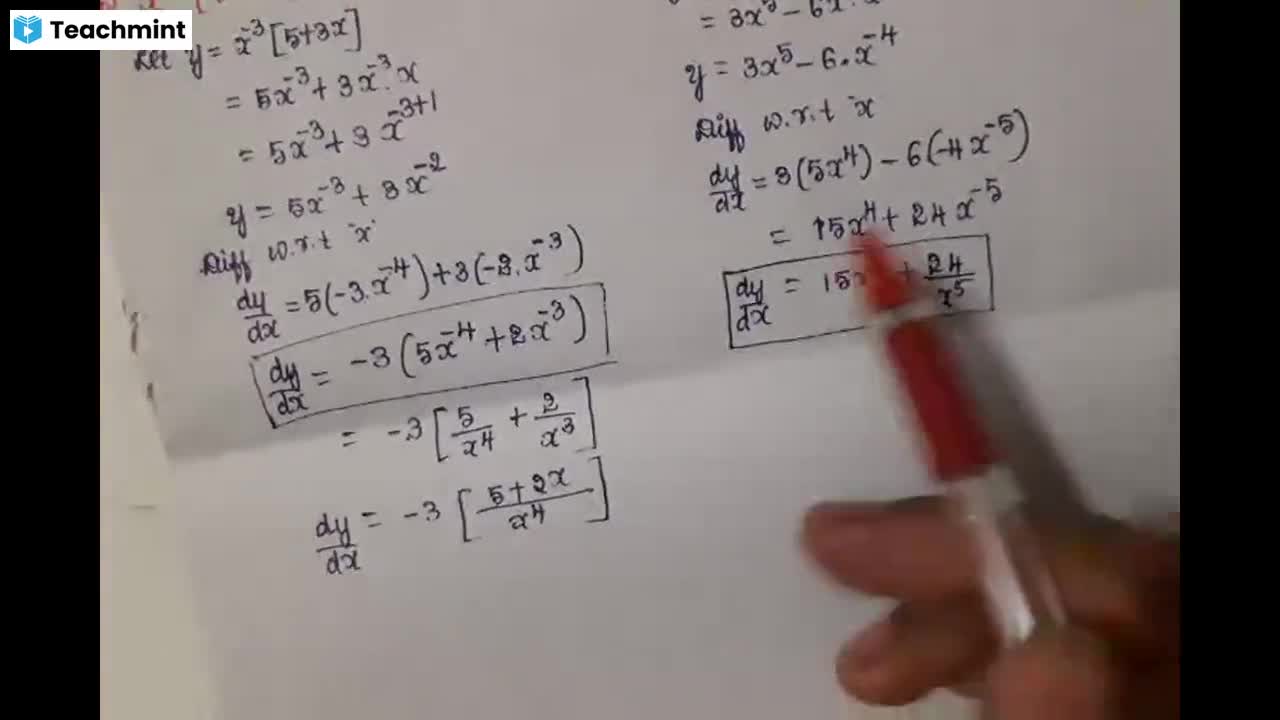 Teachmint
Let y = x⁻³ [5+3x]
= 5x⁻³ + 3x⁻³·x
= 5x⁻³ + 3 x⁻³⁺¹
y = 5x⁻³ + 3x⁻²
Diff w.r.t 'x'
dy/dx = 5(-3·x⁻⁴) + 3(-2·x⁻³)
dy/dx = -3 (5x⁻⁴ + 2x⁻³)
= -3 [5/x⁴ + 2/x³]
dy/dx = -3 [5+2x/x⁴]
= 3x⁵ - 6x
y = 3x⁵ - 6·x⁻⁴
Diff w.r.t 'x
dy/dx = 3(5x⁴) - 6(-4x⁻⁵)
= 15x⁴ + 24x⁻⁵
dy/dx = 15x + 24/x⁵